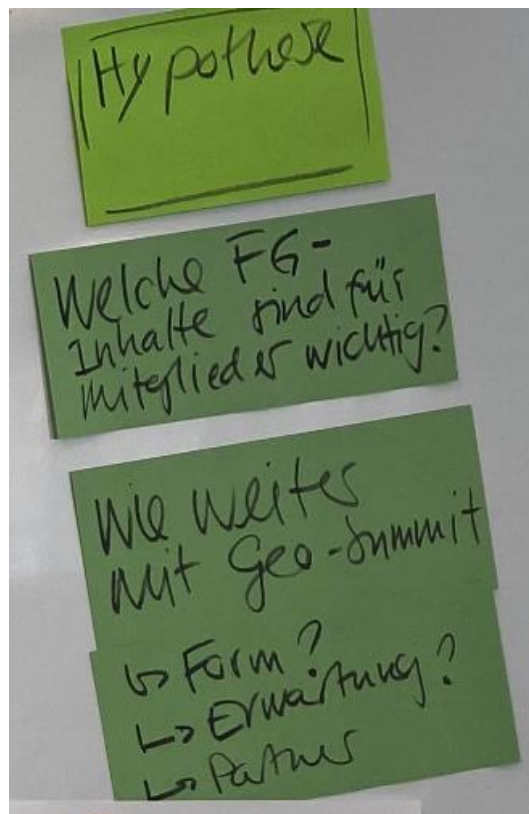 Hypothese
Welche FG-
Inhalte sind für
Mitglieder wichtig?
Wie weiter
mit Geo-Summit
↳ Form?
↳ Erwartung?
↳ Partner